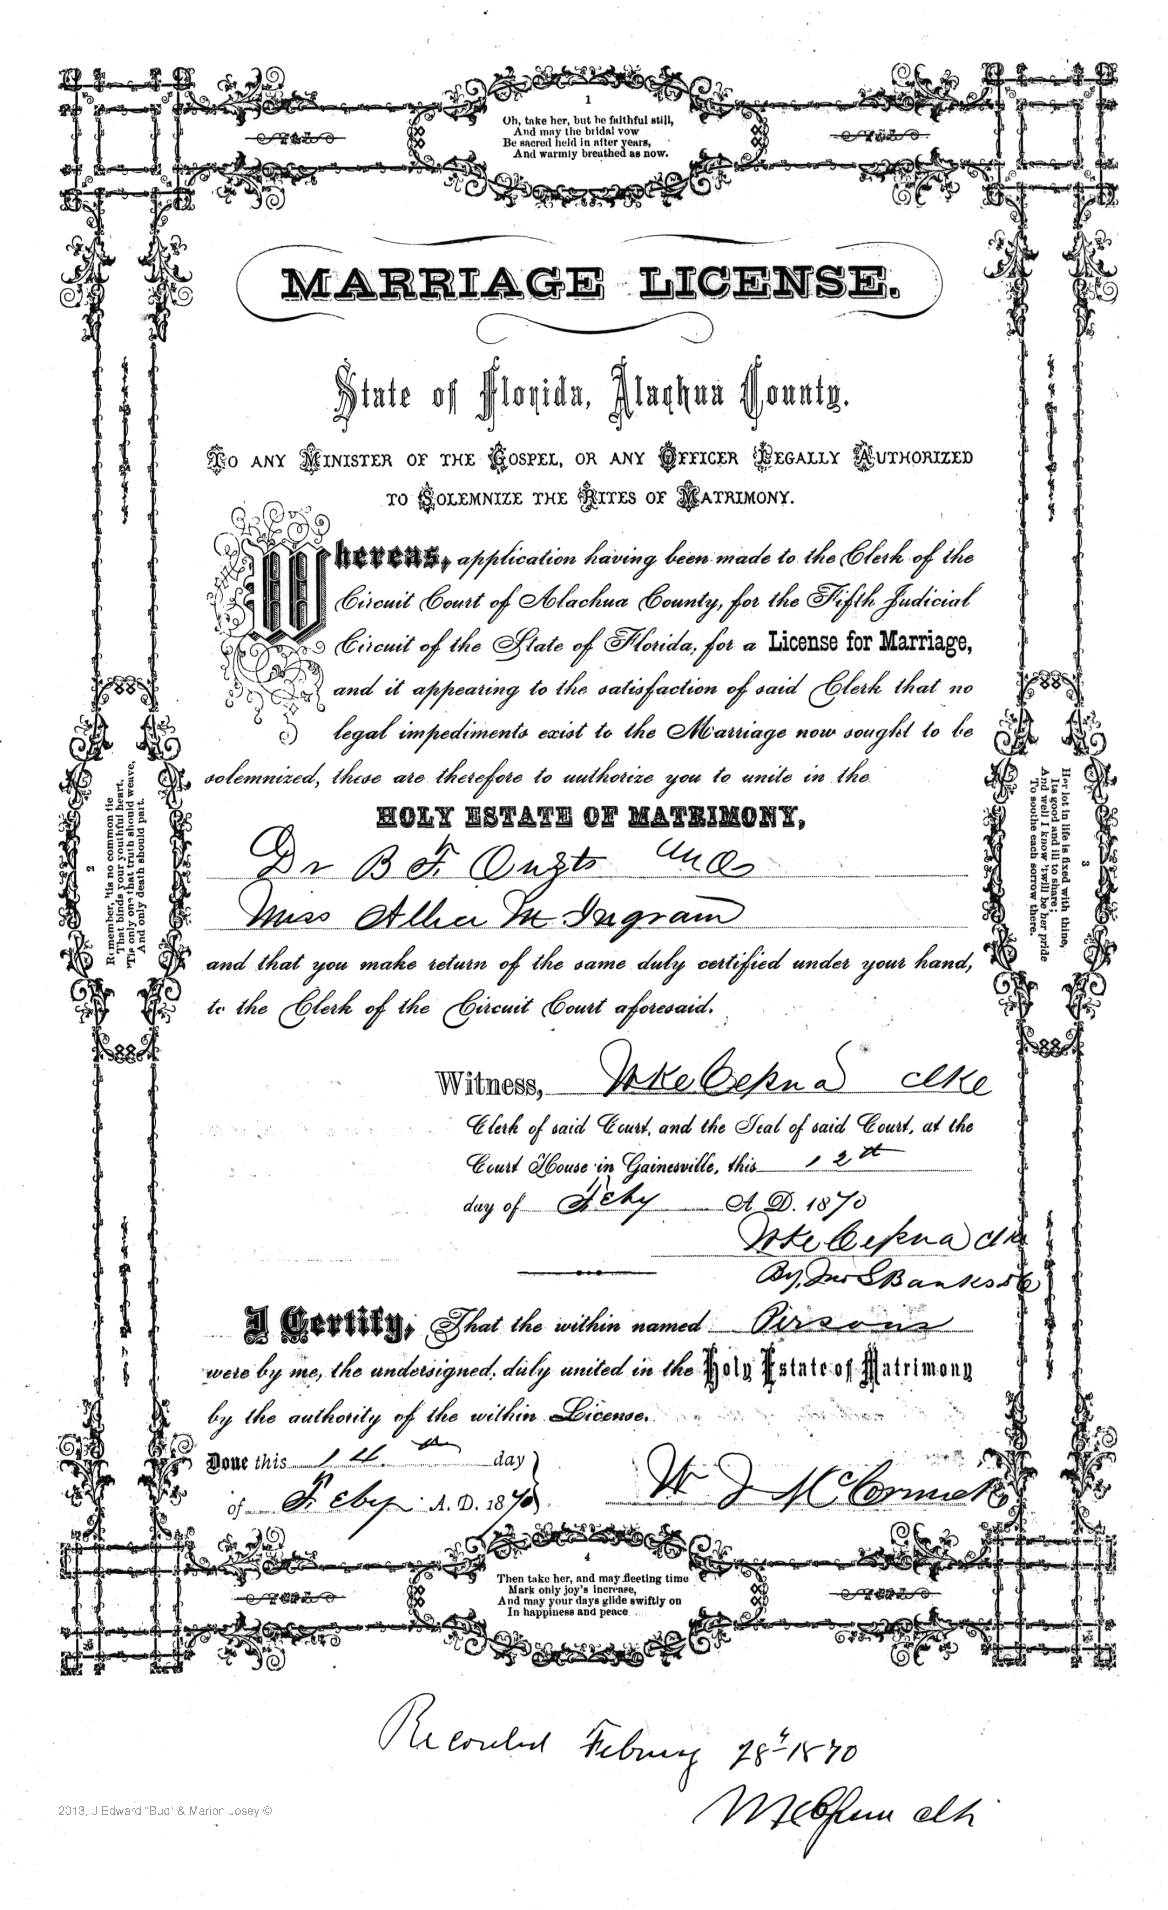 1
Oh, take her, but be faithful still,
And may the bridal vow
Be sacred held in after years,
And warmly breathed as now.
MARRIAGE LICENSE.
State of Florida, Alachua County.
TO ANY MINISTER OF THE GOSPEL, OR ANY OFFICER LEGALLY AUTHORIZED
TO SOLEMNIZE THE RITES OF MATRIMONY.
Whereas, application having been made to the Clerk of the
Circuit Court of Alachua County, for the Fifth Judicial
Circuit of the State of Florida, for a License for Marriage,
and it appearing to the satisfaction of said Clerk that no
legal impediments exist to the Marriage now sought to be
solemnized, these are therefore to authorize you to unite in the
HOLY ESTATE OF MATRIMONY,
Dr B F Ouzts and
Miss M Ingram
and that you make return of the same duly certified under your hand,
to the Clerk of the Circuit Court aforesaid.
2
Remember, 'tis no common tie
That binds your youthful heart,
'Tis only one that truth should weave,
And only death should part.
3
Her lot in life is fixed with thine,
Its good and ill to share;
And well I know 'twill be her pride
To soothe each sorrow there.
Witness, Clk
Clerk of said Court, and the Seal of said Court, at the
Court House in Gainesville, this 12th
day of Feby A. D. 1870
Clk
By, Jno S Banks DC
I Certify, That the within named Persons
were by me, the undersigned, duly united in the Holy Estate of Matrimony
by the authority of the within License.
Done this 14th day
of Feby A. D. 1870
W J McCormick
4
Then take her, and may fleeting time
Mark only joy's increase,
And may your days glide swiftly on
In happiness and peace
Recorded Februy 28th 1870
Clk
2013, J Edward "Bud" & Marion Josey ©